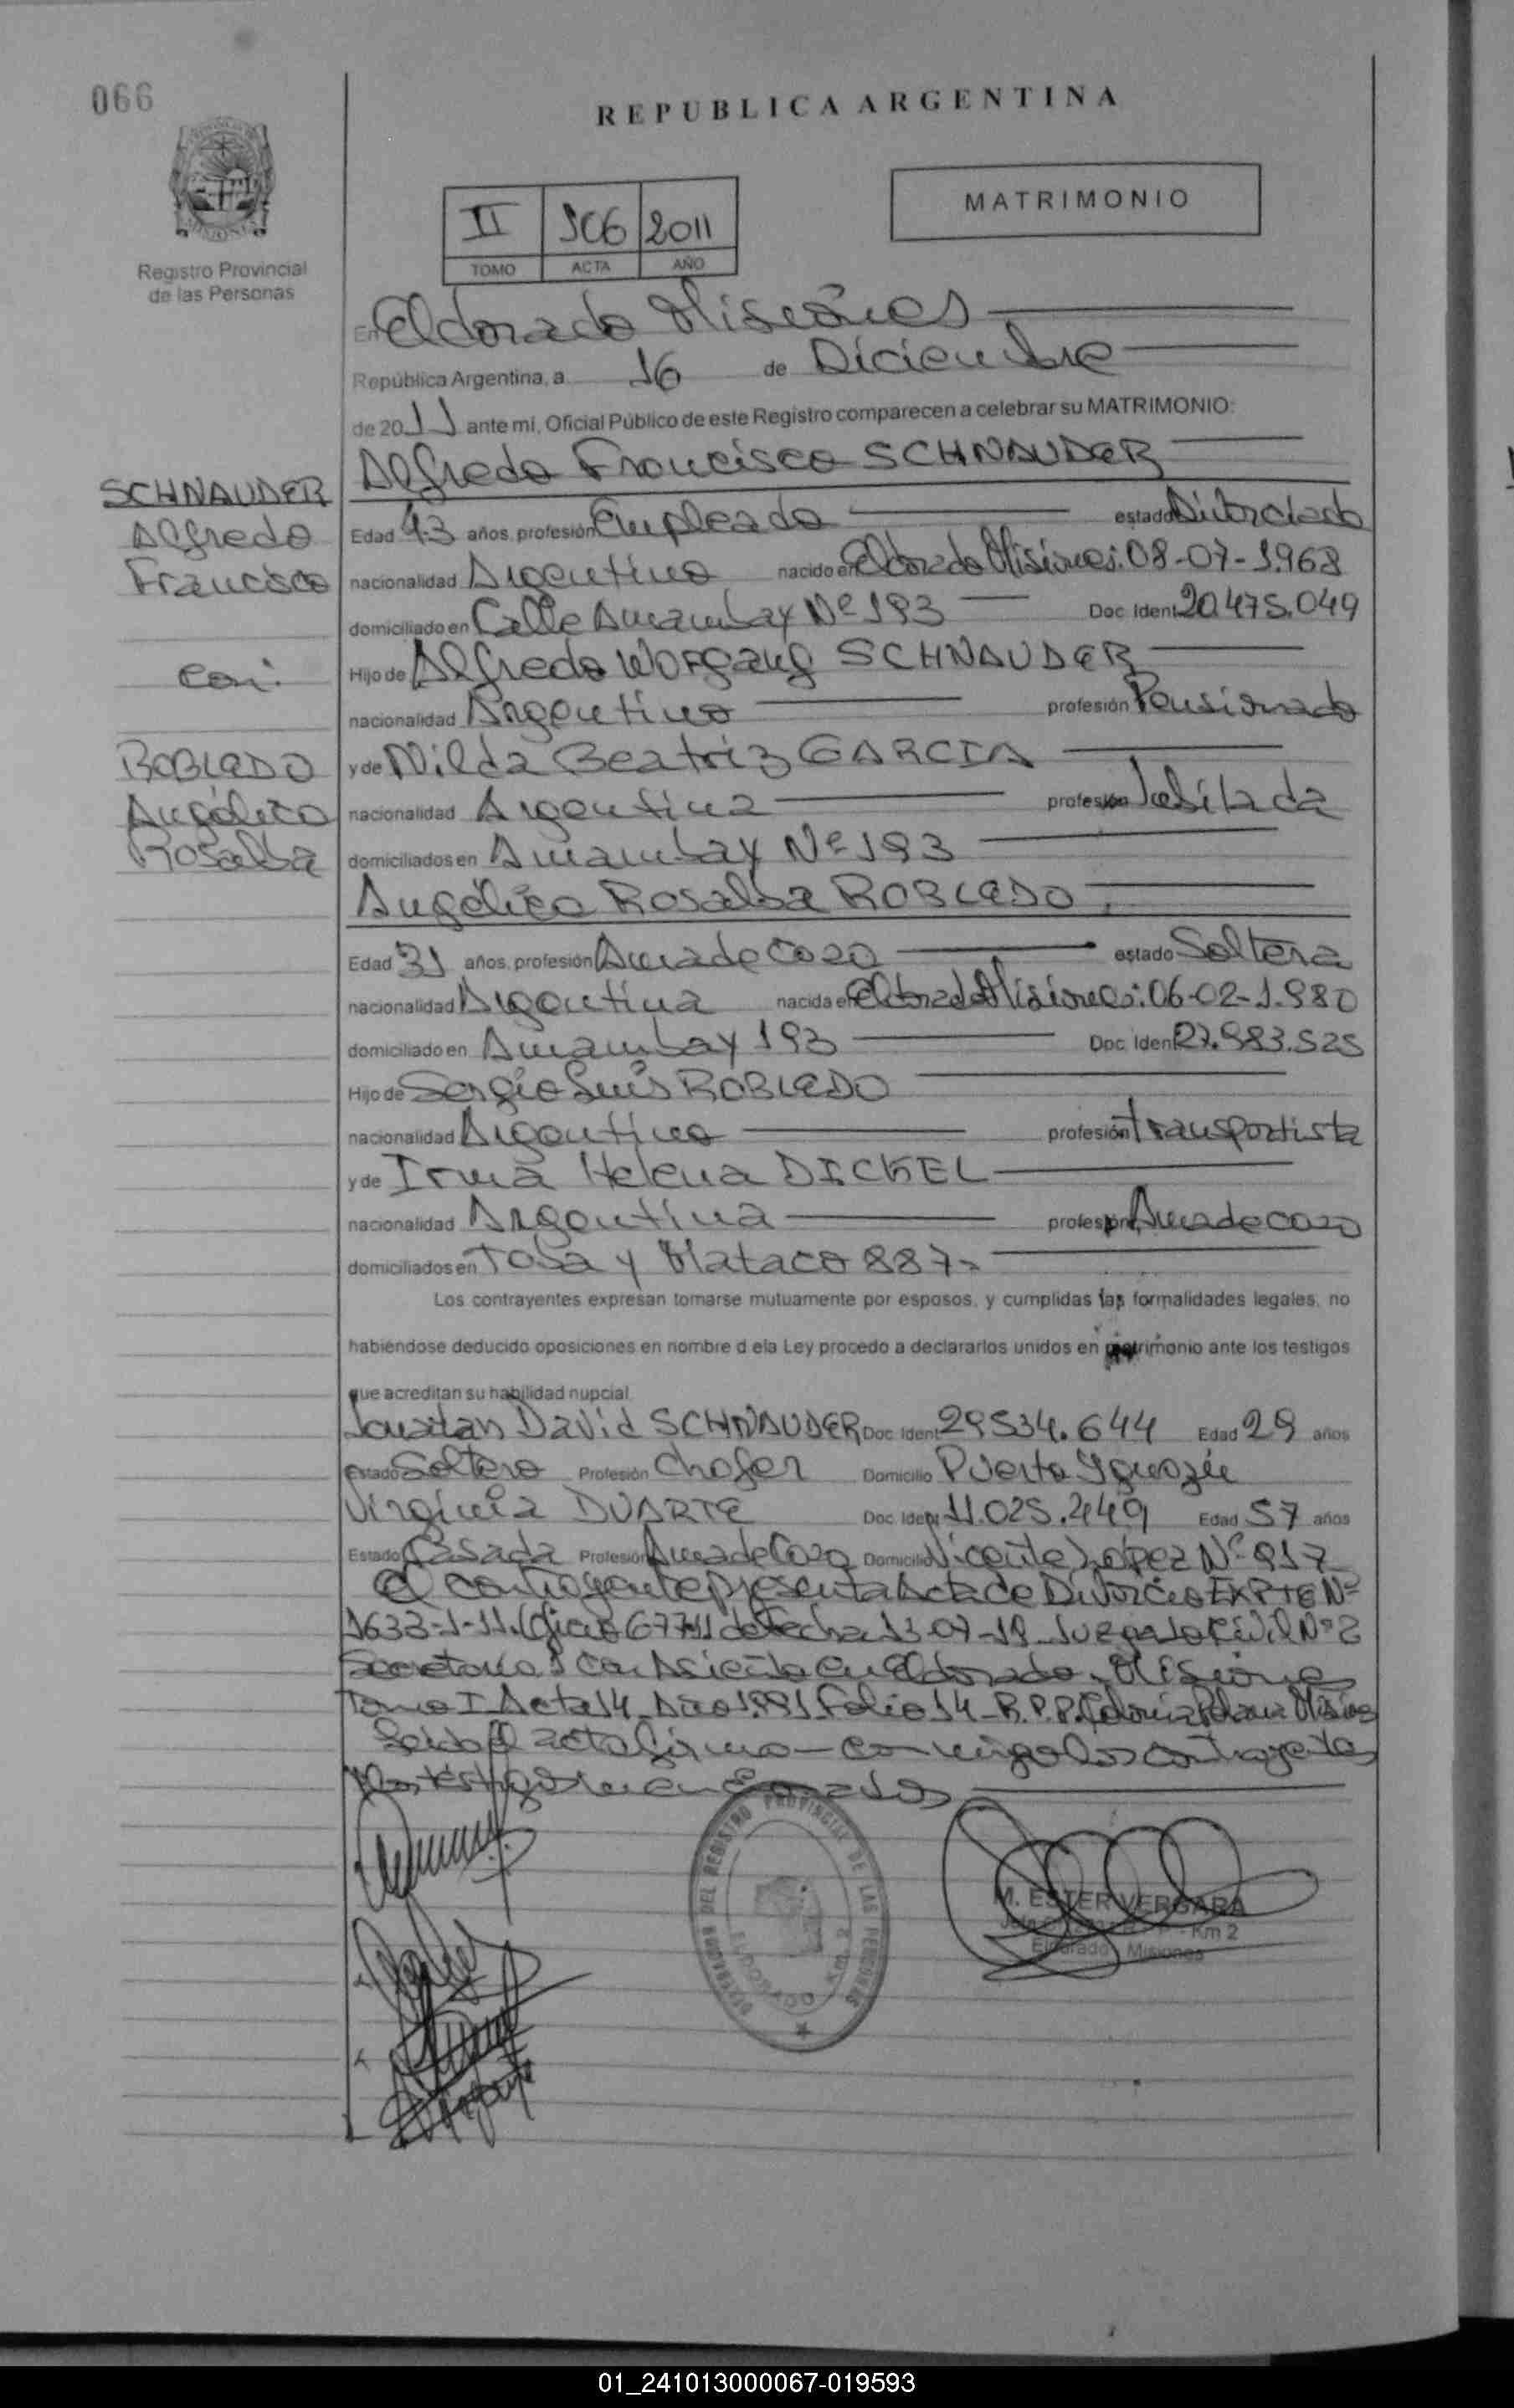 066
REPUBLICA ARGENTINA
MATRIMONIO
II 106 2011
TOMO ACTA AÑO
Registro Provincial
de las Personas
En Eldorado Misiones
República Argentina, a 16 de Diciembre
de 2011 ante mi, Oficial Público de este Registro comparecen a celebrar su MATRIMONIO:
Alfredo Francisco SCHNAUDER
SCHNAUDER
Alfredo
Francisco
con:
ROBLEDO
Angélica
Rosalba
Edad 43 años, profesión Empleado estado Divorciado
nacionalidad Argentino nacido en Eldorado Misiones: 08-07-1.968
domiciliado en Calle Amambay Nº 193 Doc. Ident 20.475.049
Hijo de Alfredo Worgang SCHNAUDER
nacionalidad Argentino profesión Pensionado
y de Nilda Beatriz GARCIA
nacionalidad Argentina profesión Jubilada
domiciliados en Amambay Nº 193
Angélica Rosalba ROBLEDO
Edad 31 años, profesión Ama de Casa estado Soltera
nacionalidad Argentina nacida en Eldorado Misiones: 06-02-1.980
domiciliado en Amambay 193 Doc. Ident 27.983.525
Hijo de Sergio Luis ROBLEDO
nacionalidad Argentino profesión transportista
y de Irma Helena DICKEL
nacionalidad Argentina profesión Ama de casa
domiciliados en Toba y Mataco 887-
Los contrayentes expresan tomarse mutuamente por esposos, y cumplidas las formalidades legales, no
habiéndose deducido oposiciones en nombre d ela Ley procedo a declararlos unidos en matrimonio ante los testigos
que acreditan su habilidad nupcial
Jonatan David SCHNAUDER Doc. Ident 29.534.644 Edad 29 años
Estado Soltero Profesión Chofer Domicilio Puerto Iguazú
Virginia DUARTE Doc. Ident 11.025.449 Edad 57 años
Estado Casada Profesión Ama de Casa Domicilio Vicente Lopez Nº 917
El contrayente presenta Acta de Divorcio EXPTE Nº
1633-1-11. Oficio 677-11 de fecha 13-07-11 Juzgado Civil Nº 2
Secretaria 1 con Asiento en Eldorado, Misiones
Tomo I Acta 14 Año 1.991 Folio 14 R.P.P. Colonia Polana Misiones
Leida el acta firman conmigo los contrayentes
y los testigos mencionados
DEPARTAMENTO DEL REGISTRO PROVINCIAL DE LAS PERSONAS
ELDORADO Km. 2
M. ESTER VERGARA
Km 2
Eldorado Misiones
01_241013000067-019593